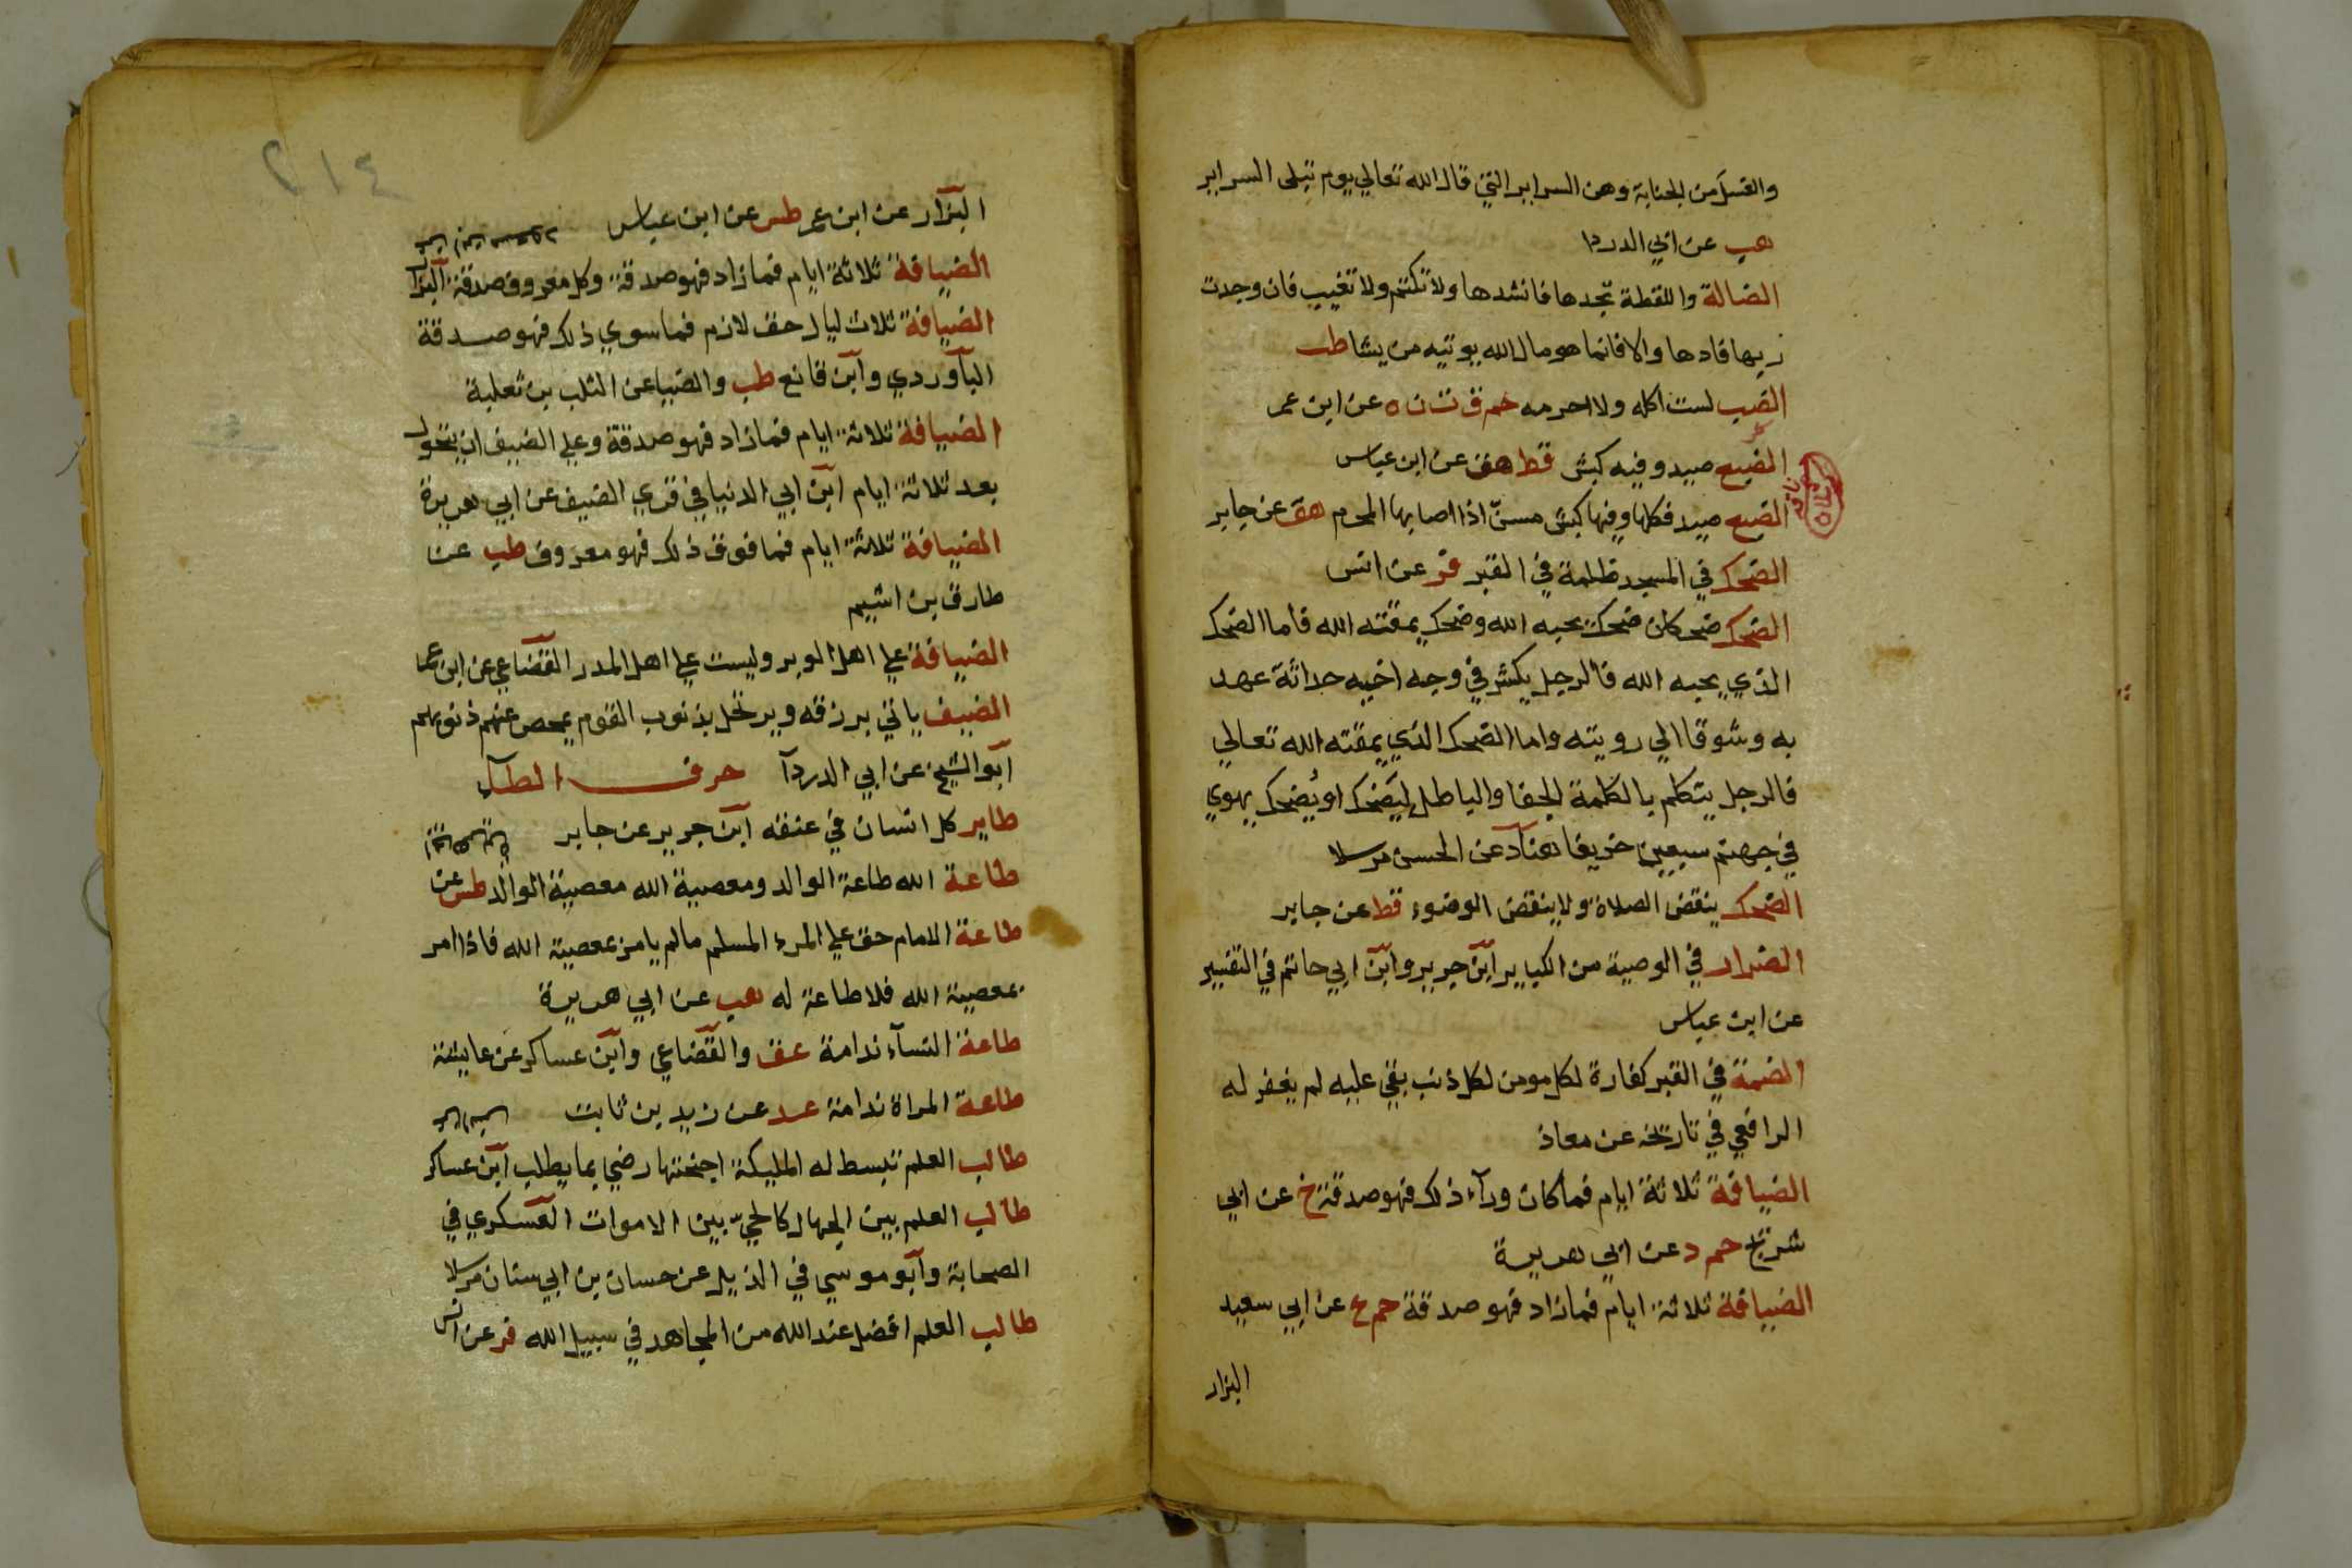 والغسل من الجنابة وهن السراير التي قال الله تعالي يوم تبلى السراير
هب عن ابي الدردا
الضالة واللقطة تجدها فانشدها ولا تكتم ولا تغيب فان وجدت
ربها فادها والا فانما هو مال الله يوتيه من يشا طب
الضب لست اكله ولا احرمه حم ق ت ن ه عن ابن عمر
الضبع صيد وفيه كبش قط هق عن ابن عباس
الضبع صيد فكلها وفيها كبش مسنّ اذا اصابها المحرم هق عن جابر
الضحك في المسجد ظلمة في القبر فر عن انس
الضحك ضحكان ضحك يحبه الله وضحك يمقته الله فاما الضحك
الذي يحبه الله فالرجل يكشر في وجه اخيه حداثة عهد
به وشوقا الي رويته واما الضحك الذي يمقته الله تعالي
فالرجل يتكلم بالكلمة الجفا والباطل ليَضحك او يُضحك يهوي
في جهنم سبعين خريفا هناد عن الحسن مرسلا
الضحك ينقض الصلاة ولا ينقض الوضوء قط عن جابر
الضرار في الوصية من الكباير ابن جرير وابن ابي حاتم في التفسير
عن ابن عباس
الضمة في القبر كفارة لكل مومن لكل ذنب بقي عليه لم يغفر له
الرافعي في تاريخه عن معاذ
الضيافة ثلاثة ايام فما كان ورآء ذلك فهو صدقة خ عن ابي
شريح حم د عن ابي هريرة
الضيافة ثلاثة ايام فما زاد فهو صدقة حم ع عن ابي سعيد
البزار
٢١٤
البزار عن ابن عمر طس عن ابن عباس
الضيافة ثلاثة ايام فما زاد فهو صدقة وكل معروف صدقة البزار
عن ابن مسعود
الضيافة ثلاث ليال حق لازم فما سوي ذلك فهو صدقة
الباوردي وابن قانع طب والضيا عن الثلب بن ثعلبة
الضيافة ثلاثة ايام فما زاد فهو صدقة وعلي الضيف ان يتحول
بعد ثلاثة ايام ابن ابي الدنيا في قري الضيف عن ابي هريرة
الضيافة ثلاثة ايام فما فوق ذلك فهو معروف طب عن
طارق بن اشيم
الضيافة علي اهل الوبر وليست علي اهل المدر القضاعي عن ابن عمر
الضيف ياتي برزقه ويرتحل بذنوب القوم يمحص عنهم ذنوبهم
ابو الشيخ عن ابي الدردآ حرف الطآء
طاير كل انسان في عنقه ابن جرير عن جابر
طاعة الله طاعة الوالد ومعصية الله معصية الوالد طس عن
ابي هريرة
طاعة الامام حق علي المرء المسلم ما لم يامر بمعصية الله فاذا امر
بمعصية الله فلا طاعة له هب عن ابي هريرة
طاعة النسآء ندامة عق والقضاعي وابن عساكر عن عايشة
طاعة المراة ندامة عد عن زيد بن ثابت
طالب العلم تبسط له المليكة اجنحتها رضي بما يطلب ابن عساكر
طالب العلم بين الجهال كالحيّ بين الاموات العسكري في
الصحابة وابو موسي في الذيل عن حسان بن ابي سنان مرسلا
طالب العلم افضل عند الله من المجاهد في سبيل الله فر عن انس